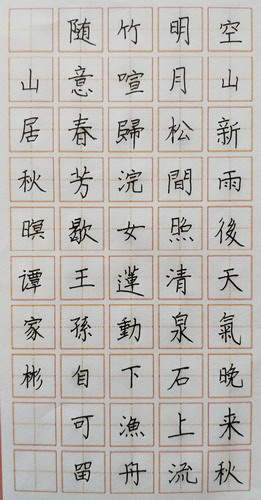 空山新雨後天氣晚来秋
明月松間照清泉石上流
竹喧歸浣女蓮動下漁舟
随意春芳歇王孫自可留
山居秋暝谭家彬